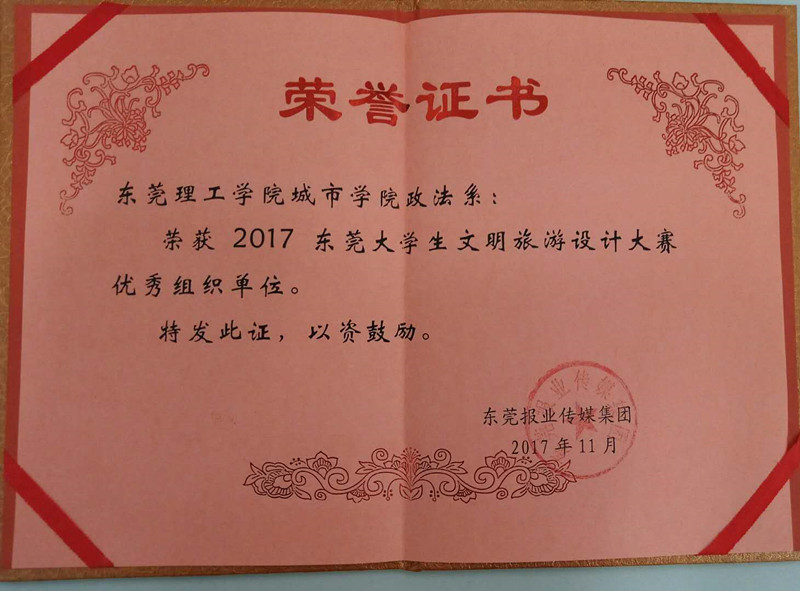 荣誉证书
东莞理工学院城市学院政法系：
荣获 2017 东莞大学生文明旅游设计大赛
优秀组织单位。
特发此证，以资鼓励。
东莞报业传媒集团
2017 年 11 月